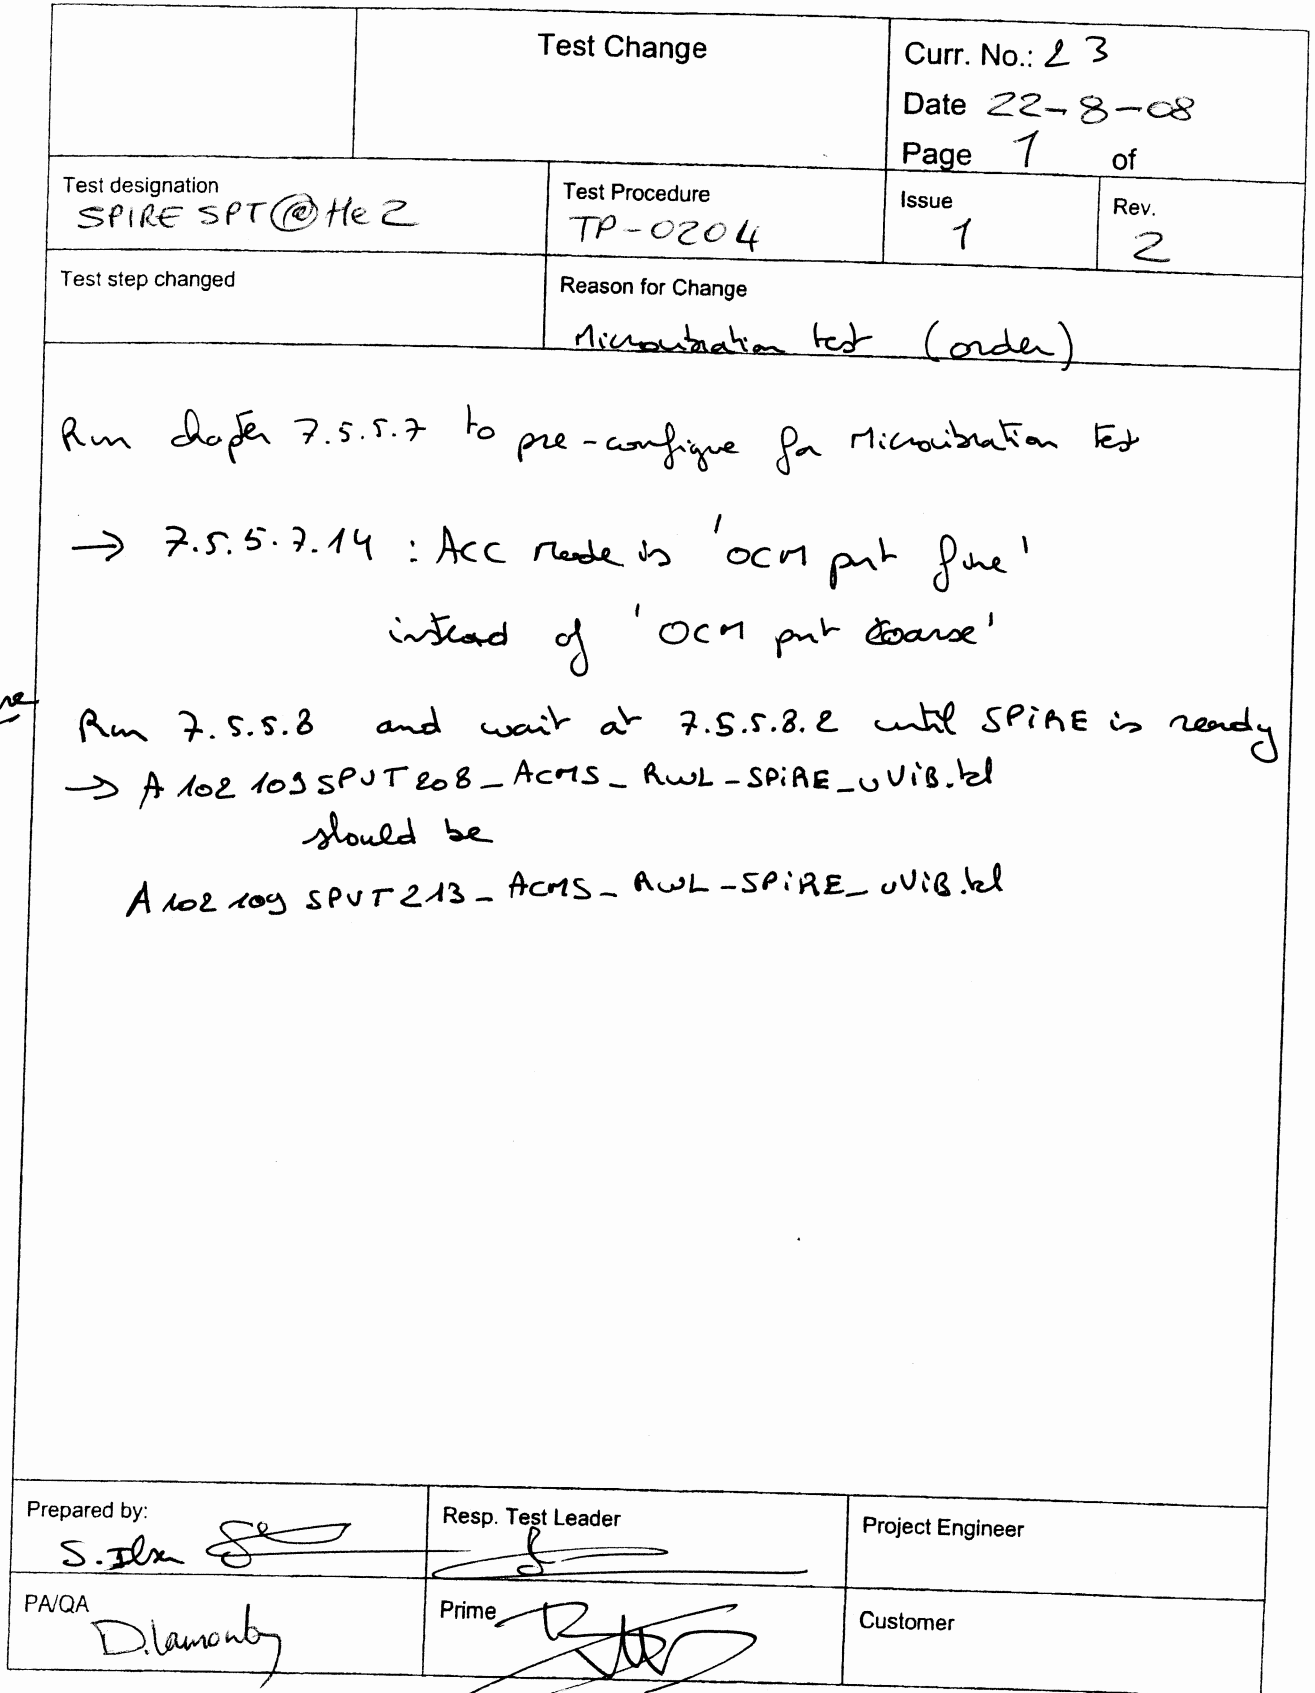 Test Change
Curr. No.: 23
Date 22-8-08
Page 1 of
Test designation
SPIRE SPT @ He2
Test Procedure
TP-0204
Issue
1
Rev.
2
Test step changed
Reason for Change
Microvibration test (order)
Run chapter 7.5.5.7 to pre-configure for Microvibration test
→ 7.5.5.7.14 : ACC mode is 'OCM pnt fine'
instead of 'OCM pnt coarse'
Run 7.5.5.8 and wait at 7.5.5.8.2 until SPIRE is ready
→ A102109SPVT208_ACMS_RWL-SPIRE_uVIB.tcl
should be
A102109SPVT213_ACMS_RWL-SPIRE_uVIB.tcl
Prepared by:
S.
Resp. Test Leader
Project Engineer
PA/QA
D. Lamonby
Prime
Customer